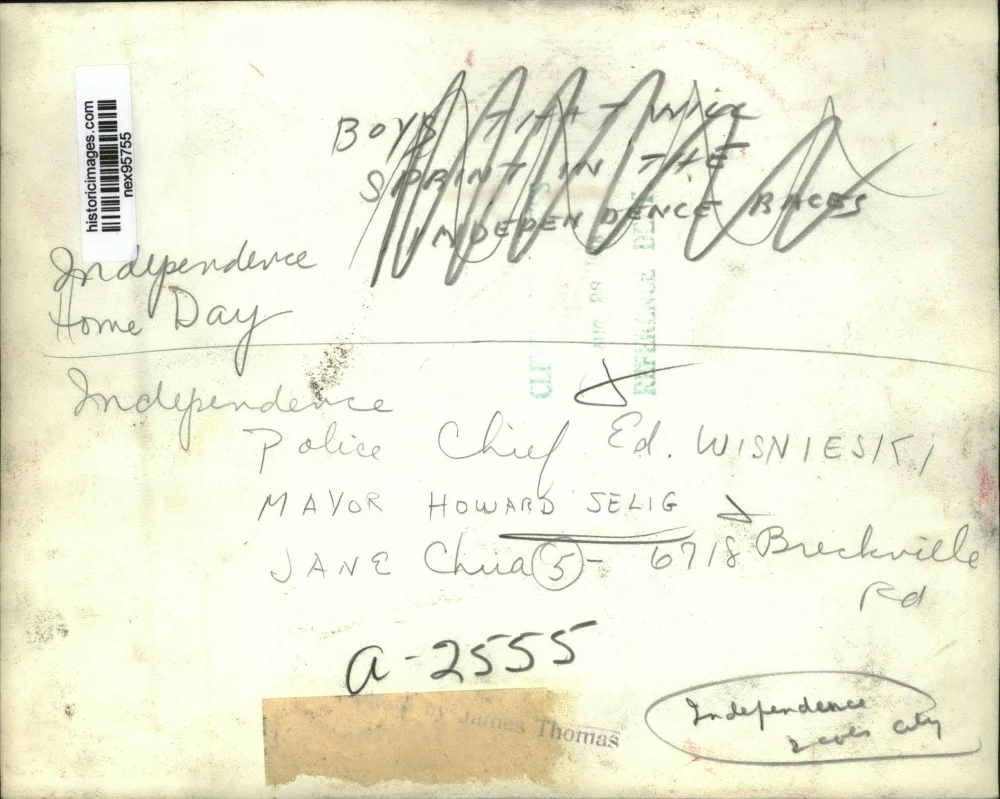 historicimages.com
nex95755
BOYS THAT WILL
SPRINT IN THE
INDEPENDENCE RACES
Independence
Home Day
AUG 28
REFERENCE DEPT
Independence
Police Chief Ed. WISNIESKI
MAYOR HOWARD SELIG
JANE Chua 5 - 6718 Breckville
Rd
A-2555
by James Thomas
Independence
city